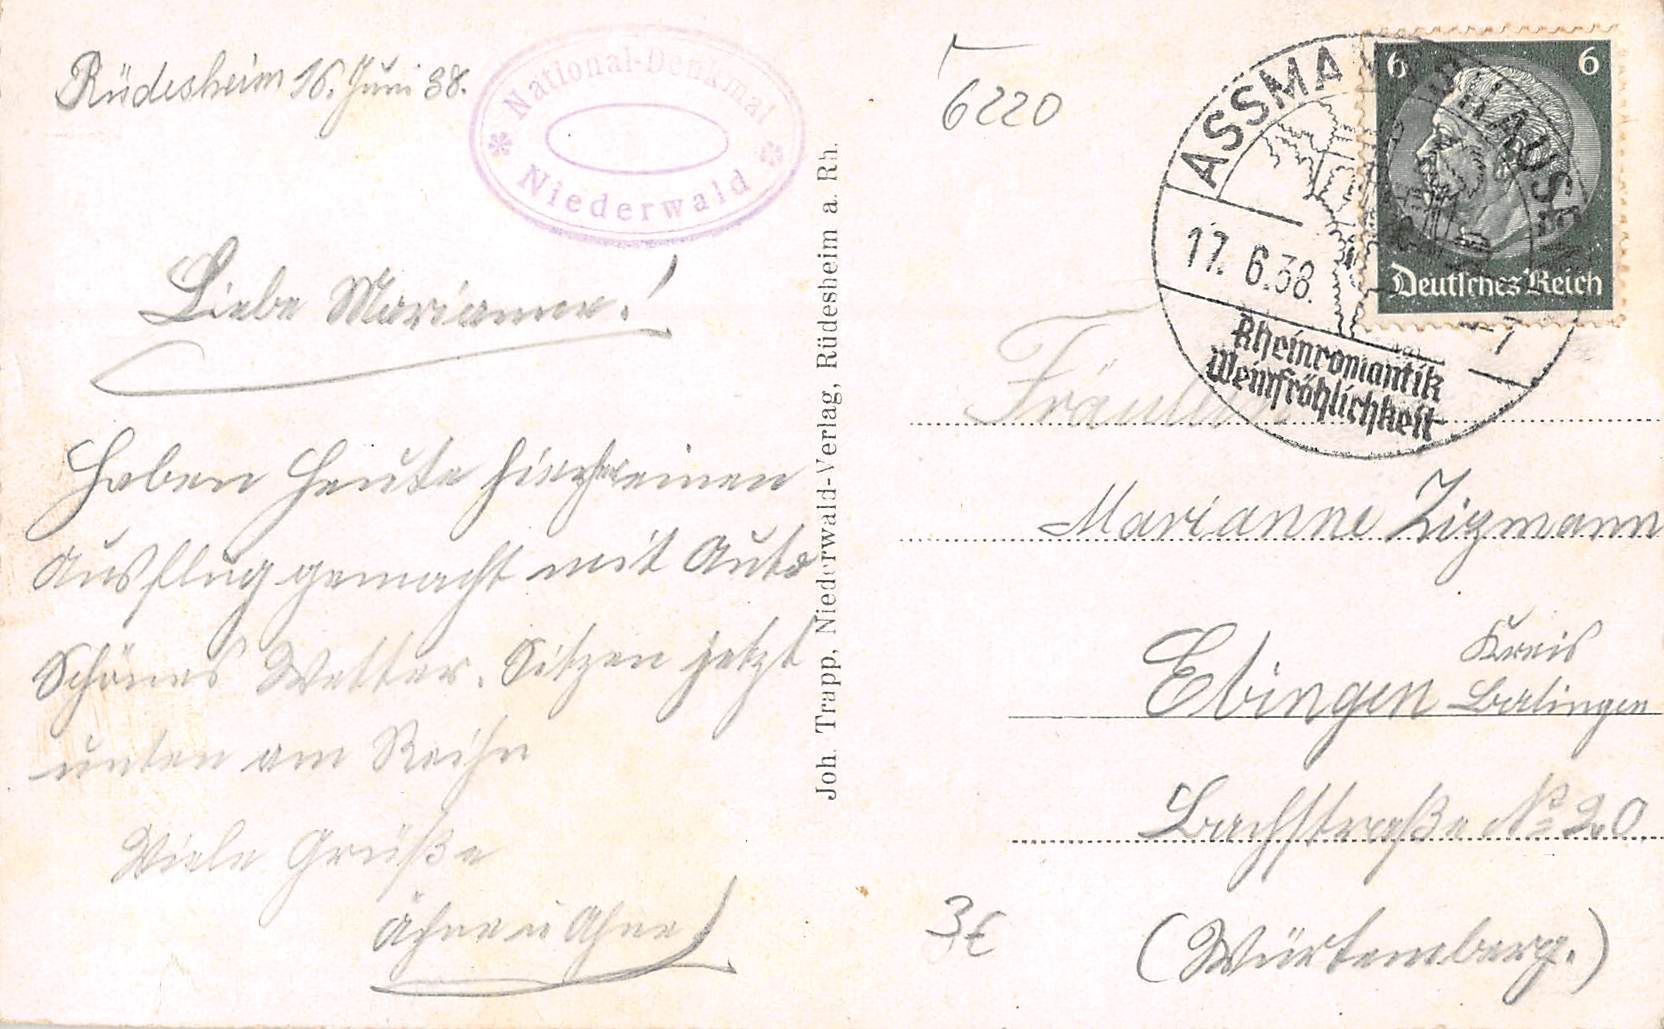 Rüdesheim 16. Juni 38.
National-Denkmal
Niederwald
Liebe Marianne!
Haben heute hier einen
Ausflug gemacht mit Auto
Schönes Wetter. Sitzen jetzt
unten am Reihn
Viele Grüße
Ähne u Ahne
Joh. Trapp, Niederwald-Verlag, Rüdesheim a. Rh.
6220
ASSMANNSHAUSEN
17.6.38.
Rheinromantik
Weinfröhlichkeit
6 6
Deutsches Reich
Fräulein
Marianne Zigmann
Ebingen Kreis
Balingen
Bachstraße No 20
(Würtemberg.)
3€